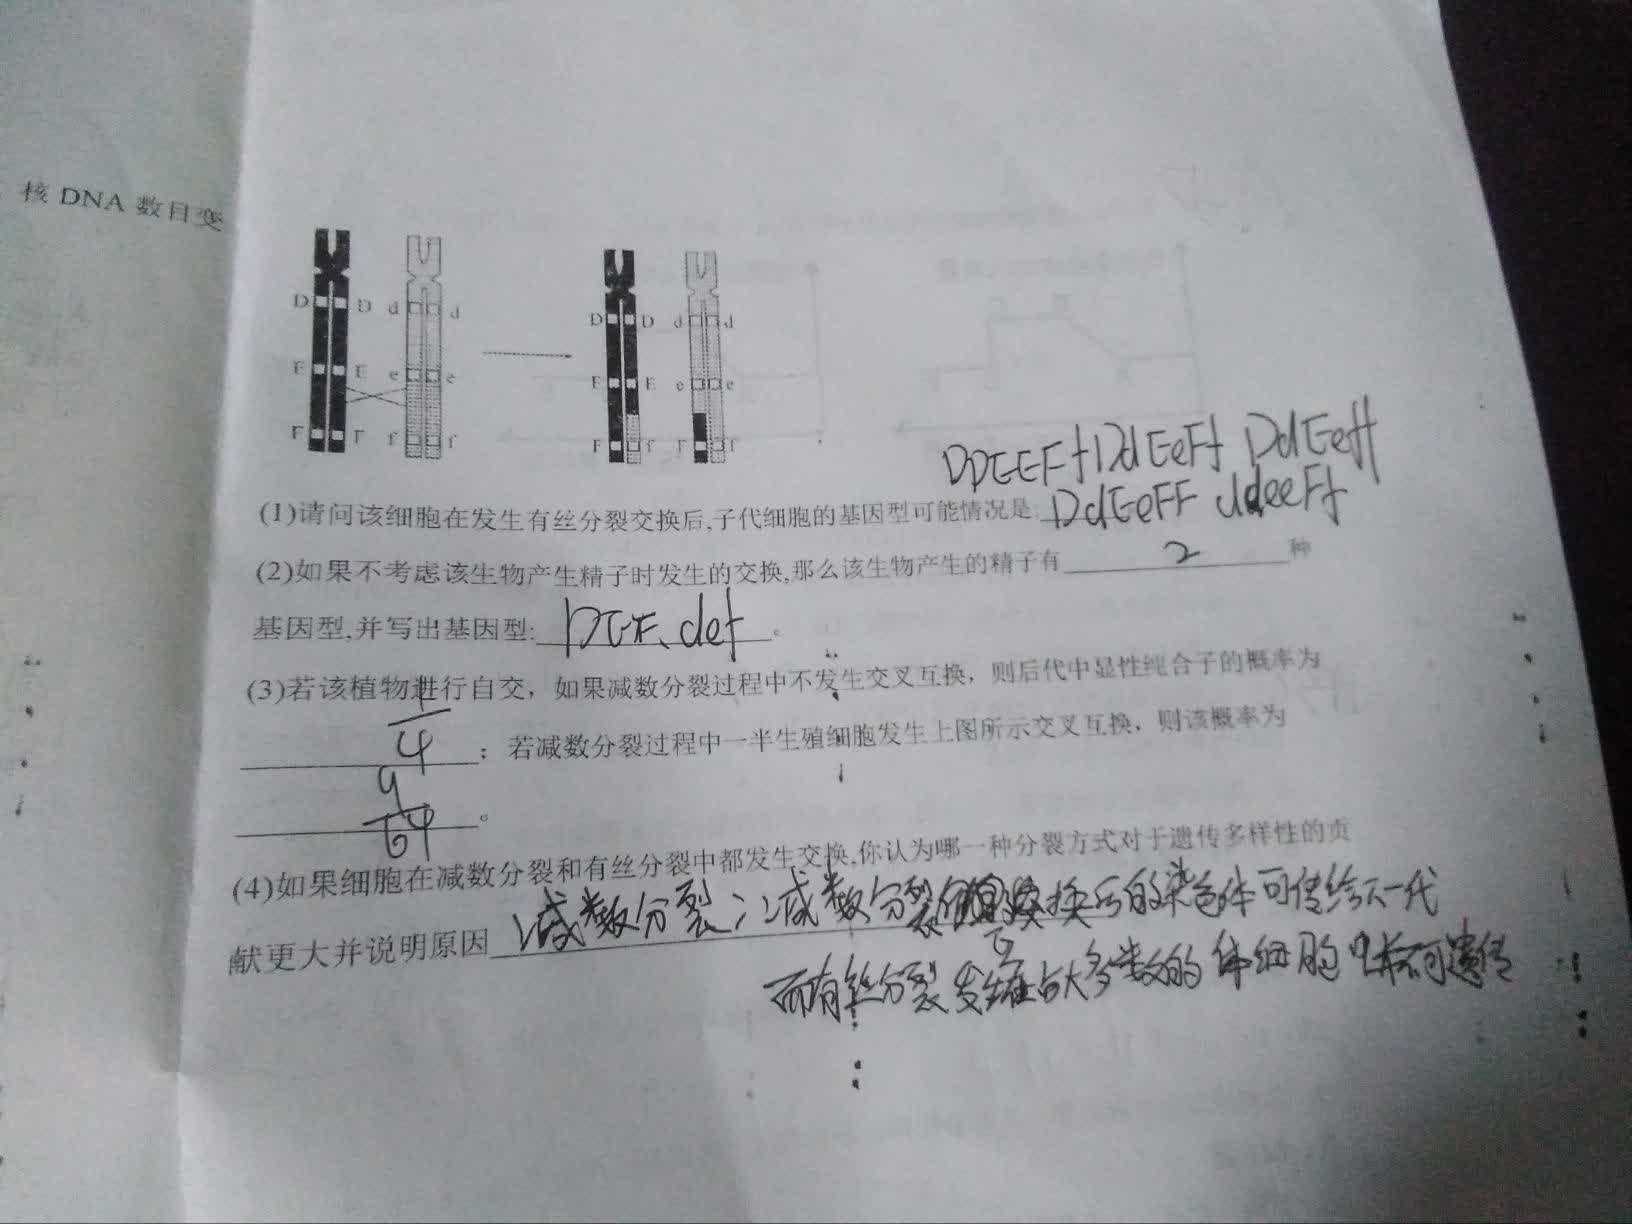 核 DNA 数目变
D D d d D D d d
E E e e E E e e
F F f f F f F f
DDEEFf DdEeFf DdEeff
(1)请问该细胞在发生有丝分裂交换后,子代细胞的基因型可能情况是: DdEeFF ddeeFf
(2)如果不考虑该生物产生精子时发生的交换,那么该生物产生的精子有 2 种
基因型,并写出基因型: DEF、def 。
(3)若该植物进行自交，如果减数分裂过程中不发生交叉互换，则后代中显性纯合子的概率为
1/4 ；若减数分裂过程中一半生殖细胞发生上图所示交叉互换，则该概率为
9/64 。
(4)如果细胞在减数分裂和有丝分裂中都发生交换,你认为哪一种分裂方式对于遗传多样性的贡
献更大并说明原因 减数分裂；减数分裂 换后的染色体可传给下一代
而有丝分裂发生在占大多数的体细胞中 不可遗传